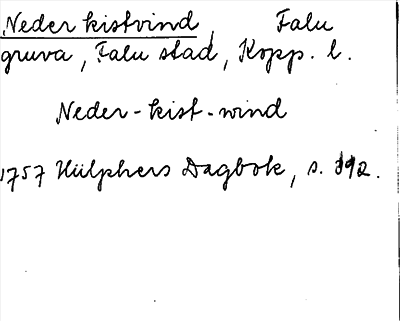 Neder kistvind, Falu
gruva, Falu stad, Kopp. l.
Neder-kist-wind
1757 Hülphers Dagbok, s. 392.